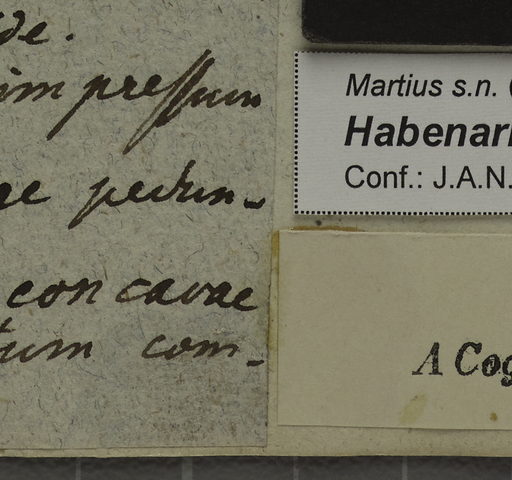 de.
im pressum
ae pedun-
concavae
tum com-
Martius s.n. (
Habenari
Conf.: J.A.N.
A Cog